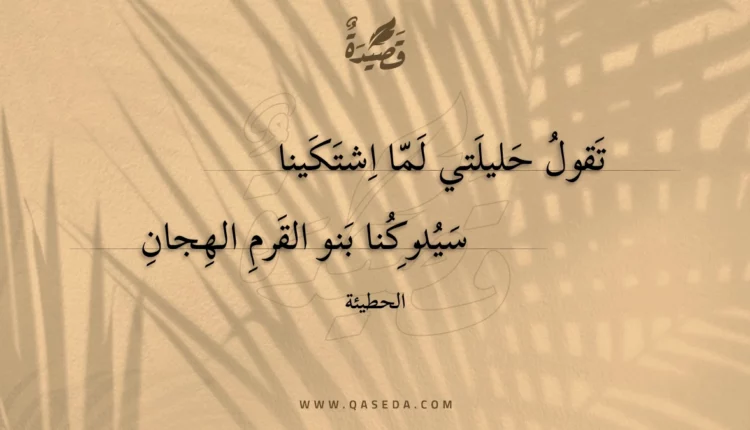 قَصِيْدَةٌ
تَقولُ حَليلَتي لَمّا اِشتَكَينا
سَيُدرِكُنا بَنو القَرمِ الهِجانِ
الحطيئة
WWW.QASEDA.COM